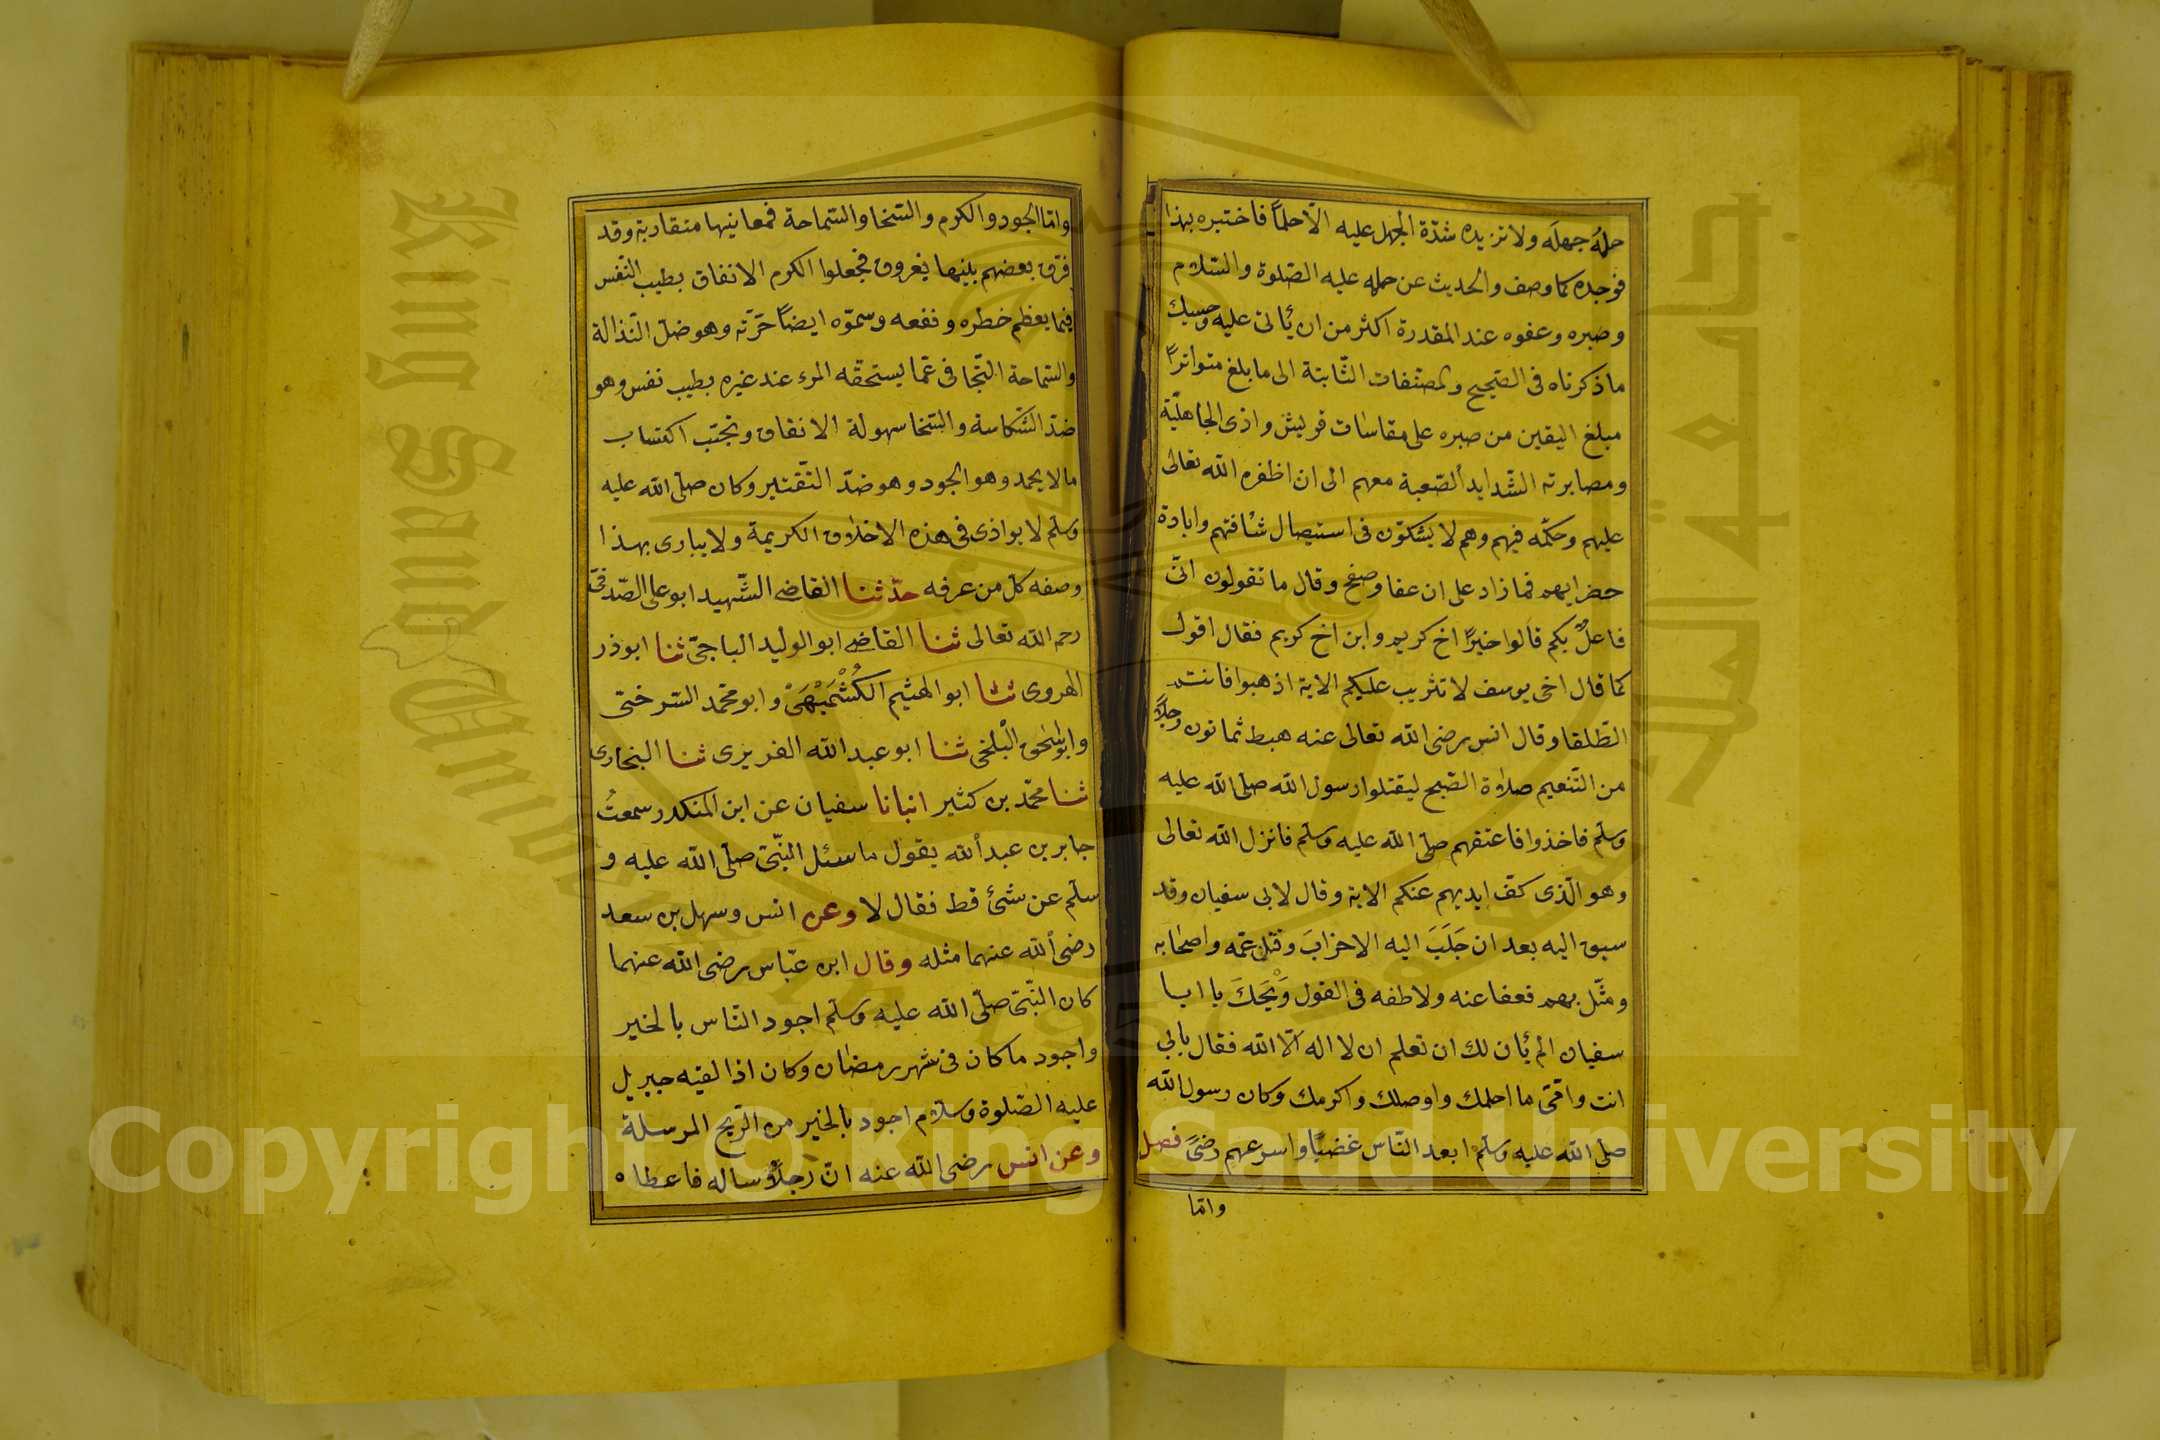 حلمُه جهلَه ولا تزيده شدّة الجهل عليه الّا حلماً فاختبره بهذا
فوجده كما وصف والحديث عن حلمه عليه الصّلوة والسّلام
وصبره وعفوه عند المقدرة اكثر من ان يُأتى عليه وحسبك
ما ذكرناه فى الصّحيح والمصنّفات الثّابتة الى ما بلغ متواتراً
مبلغ اليقين من صبره على مقاسات قريش واذى الجاهليّة
ومصابرته الشّدايد الصّعبة معهم الى ان اظفره الله تعالى
عليهم وحكّمه فيهم وهم لا يشكّون فى استيصال شأفتهم وابادة
حضرايهم فما زاد على ان عفا وصفح وقال ما تقولون انّى
فاعلٌ بكم قالوا خيراً اخ كريم وابن اخ كريم فقال اقول
كما قال اخى يوسف لا تثريب عليكم الاية اذهبوا فانتم
الطّلقا وقال انس رضى الله تعالى عنه هبط ثمانون رجلاً
من التّنعيم صلاة الصّبح ليقتلوا رسول الله صلّى الله عليه
وسلّم فاخذوا فاعتقهم صلّى الله عليه وسلّم فانزل الله تعالى
وهو الّذى كفّ ايديهم عنكم الاية وقال لابى سفيان وقد
سيق اليه بعد ان جَلَبَ اليه الاحزابَ وقتل عمّه واصحابه
ومثّل بهم فعفا عنه ولاطفه فى القول وَيْحَكَ يا ابا
سفيان الم يُأن لك ان تعلم ان لا اله الّا الله فقال بابى
انت وامّى ما احلمك واوصلك واكرمك وكان رسول الله
صلّى الله عليه وسلّم ابعد النّاس غضبًا واسرعهم رضىً فصل
وامّا
وامّا الجود والكرم والسّخا والسّماحة فمعانيها متقاربة وقد
فرّق بعضهم بينها بفروق فجعلوا الكرم الانفاق بطيب النّفس
فيما يعظم خطره ونفعه وسمّوه ايضاً حرّيّة وهو ضدّ النّذالة
والسّماحة التّجافى عمّا يستحقّه المرء عند غيره بطيب نفس وهو
ضدّ الشّكاسة والسّخا سهولة الانفاق وتجنّب اكتساب
ما لا يحمد وهو الجود وهو ضدّ التّقتير وكان صلّى الله عليه
وسلّم لا يواذى فى هذه الاخلاق الكريمة ولا يبارى بهذا
وصفه كلّ من عرفه حدّثنا القاضى الشّهيد ابو على الصّدفىّ
رحمه الله تعالى ثنا القاضى ابو الوليد الباجىّ ثنا ابوذر
الهروى ثنا ابو الهيثم الكُشْمَيْهَنِى وابو محمّد السّرخسى
وابو اسحق البلخى ثنا ابو عبد الله الفربرى ثنا البخارى
ثنا محمّد بن كثير انبانا سفيان عن ابن المنكدر سمعتُ
جابر بن عبد الله يقول ما سئل النّبىّ صلّى الله عليه و
سلّم عن شئ قط فقال لا وعن انس وسهل بن سعد
رضى الله عنهما مثله وقال ابن عبّاس رضى الله عنهما
كان النّبىّ صلّى الله عليه وسلّم اجود النّاس بالخير
واجود ما كان فى شهر رمضان وكان اذا لقيه جبريل
عليه الصّلوة وسلام اجود بالخير من الرّيح المرسلة
وعن انس رضى الله عنه انّ رجلاً ساله فاعطاه
Copyright © King Saud University
King Saud University
جامعة الملك سعود
1957